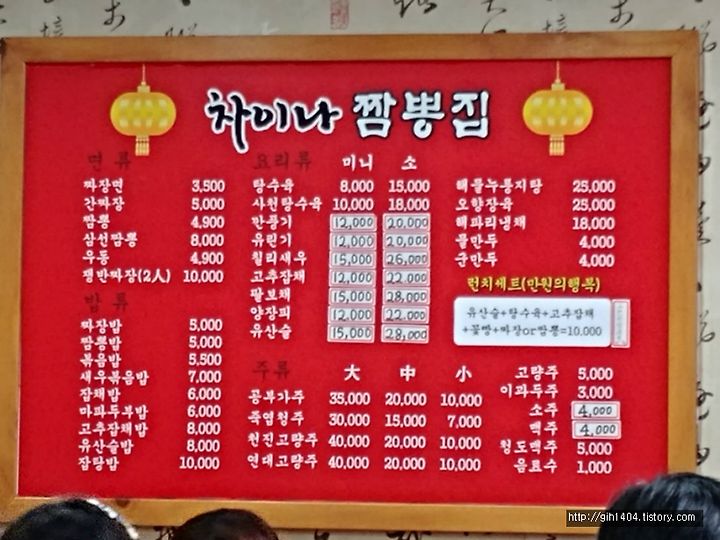 차이나 짬뽕집
면 류
짜장면 3,500
간짜장 5,000
짬뽕 4,900
삼선짬뽕 8,000
우동 4,900
쟁반짜장(2人) 10,000
밥 류
짜장밥 5,000
짬뽕밥 5,000
볶음밥 5,500
새우볶음밥 7,000
잡채밥 6,000
마파두부밥 6,000
고추잡채밥 8,000
유산슬밥 8,000
잡탕밥 10,000
요리류 미니 소
탕수육 8,000 15,000
사천탕수육 10,000 18,000
깐풍기 12,000 20,000
유린기 12,000 20,000
칠리새우 15,000 26,000
고추잡채 12,000 22,000
팔보채 15,000 28,000
양장피 12,000 22,000
유산슬 15,000 28,000
해물누룽지탕 25,000
오향장육 25,000
해파리냉채 18,000
물만두 4,000
군만두 4,000
런치세트(만원의행복)
유산슬+탕수육+고추잡채
+꽃빵+짜장or짬뽕=10,000
주류 大 中 小
공부가주 35,000 20,000 10,000
죽엽청주 30,000 15,000 7,000
천진고량주 40,000 20,000 10,000
연태고량주 40,000 20,000 10,000
고량주 5,000
이과두주 3,000
소주 4,000
맥주 4,000
청도맥주 5,000
음료수 1,000
http://gih1404.tistory.com